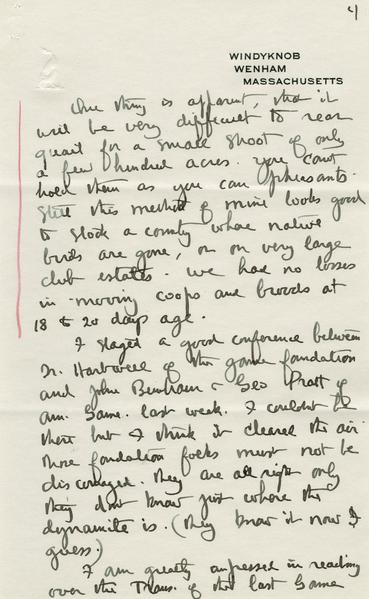 4
WINDYKNOB
WENHAM
MASSACHUSETTS
One thing is apparent, that it
will be very difficult to rear
quail for a small shoot of only
a few hundred acres. You can't
hold them as you can pheasants.
Still this method of mine looks good
to stock a county whose native
birds are gone, or on very large
club estates. We had no losses
in moving coops and broods at
18 to 20 days age.
I staged a good conference between
Dr. of the game foundation
and John Burnham & Geo Pratt of
Am. Game. last week. I couldn't be
there but I think it cleared the air.
These foundation folks must not be
discouraged. They are all right only
they don't know just where the
dynamite is. (They know it now I
guess.)
I am greatly impressed in reading
over the Trans. of the last Game